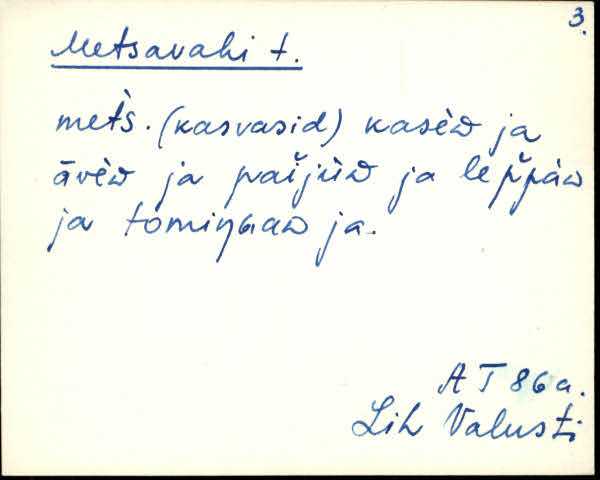 3.
Metsavahi t.
met̀s. (kasvasid) kasèᴅ ja
āvèᴅ ja paǐjùᴅ ja lep̆pàᴅ
ja tomiŋɢaᴅ ja.
AT 86a.
Lih Valusti